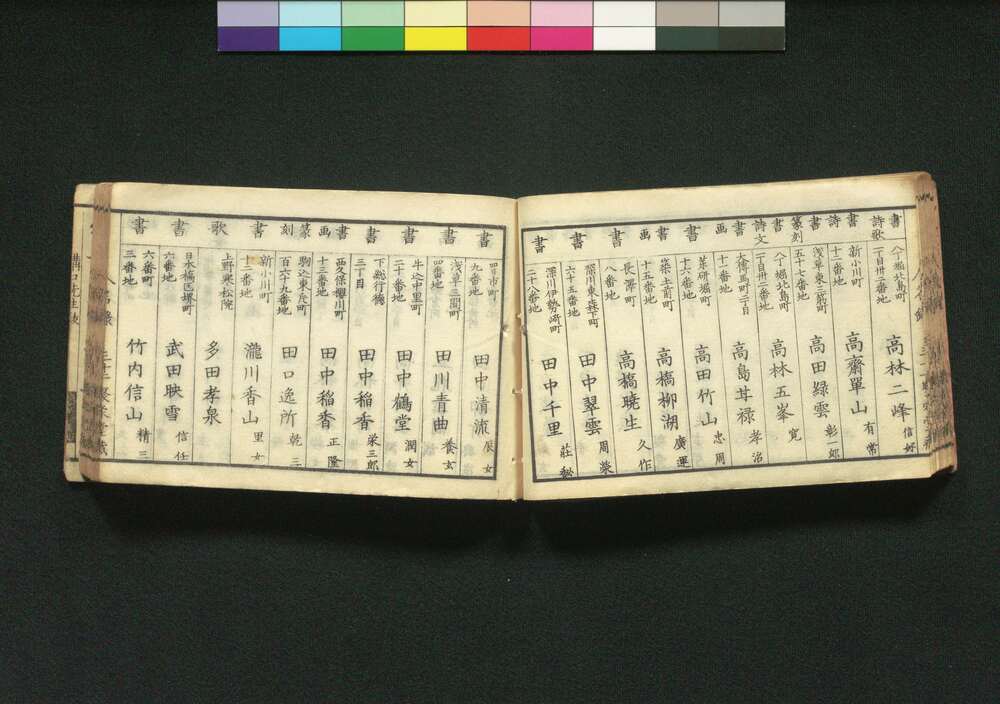 書 詩歌 八丁堀北島町一丁目卅二番地 高林二峰 信好
書 詩 新小川町十二番地 高齋單山 有常
書 篆刻 浅草東三筋町五十七番地 高田緑雲 彰一郎
書 詩文 八丁堀北島町一丁目卅二番地 高林五峯 寛
書 大傳馬町二丁目 高島其禄 孝治
書 画 薬研堀町十六番地 高田竹山 忠周
書 画 十五番地 高橋柳湖 廣運
書 長澤町八番地 高橋曉生 久作
書 深川東森下町六十五番地 田中翠雲 周榮
書 深川伊勢崎町二十八番地 田中千里
書 四日市町九番地 田中清流 辰女
書 浅草三間町四番地 田川青曲 養玄
書 牛込中里町二十二番地 田中鶴堂 潤女
書 下総行徳三丁目 田中稲香 栄三郎
書 画 西久保櫻川町十三番地 田中稲香 正隆
篆刻 駒込東片町百六十九番地 田口逸所 乾三
書 新小川町十二番地 瀧川香山 里女
歌 上野寒松院 多田孝泉
書 日本橋区堺町六番地 武田映雪 信任
書 六番町三番地 竹内信山 精三